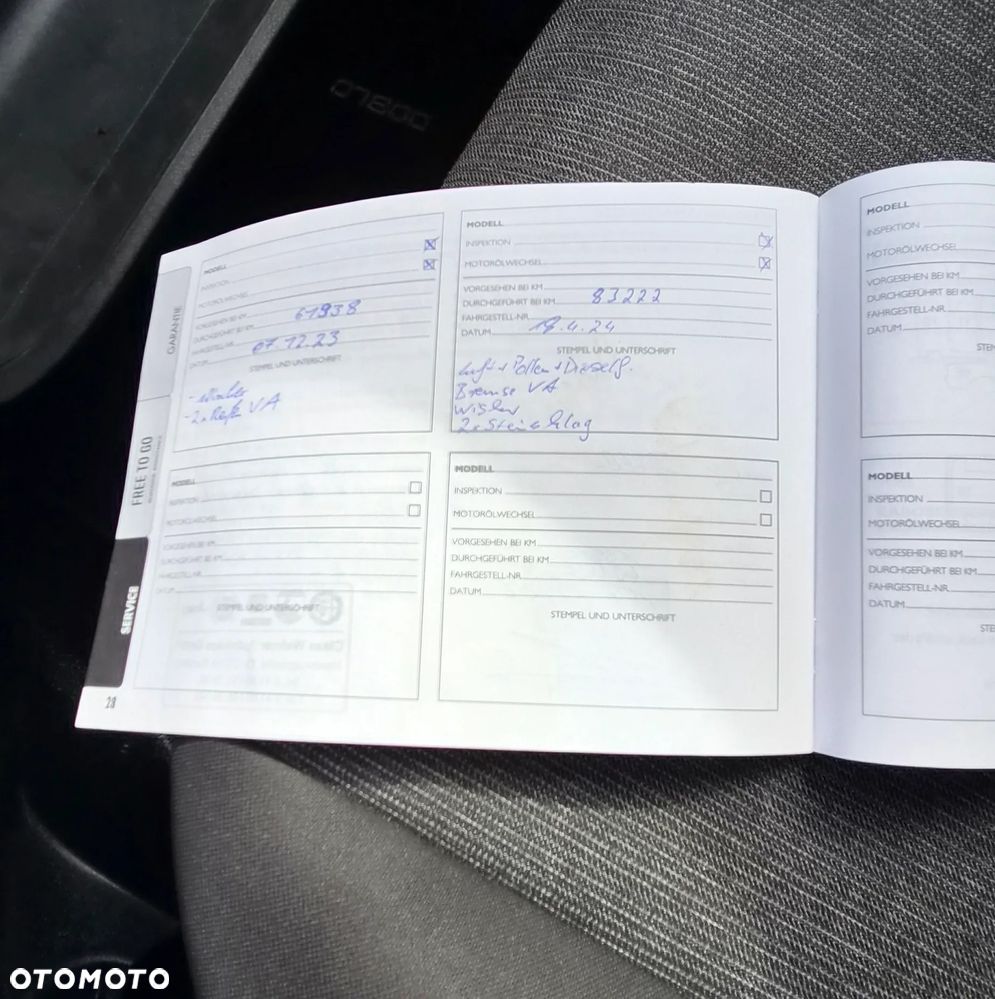 DOBLO
GARANTIE
FREE TO GO
SERVICE
28
MODELL
INSPEKTION
MOTORÖLWECHSEL
VORGESEHEN BEI KM
DURCHGEFÜHRT BEI KM 61938
FAHRGESTELL-NR.
DATUM 07.12.23
STEMPEL UND UNTERSCHRIFT
- 2x Reifen VA
MODELL
INSPEKTION
MOTORÖLWECHSEL
VORGESEHEN BEI KM
DURCHGEFÜHRT BEI KM 83222
FAHRGESTELL-NR.
DATUM 18.4.24
STEMPEL UND UNTERSCHRIFT
Luft + Pollen + Dieself.
Bremse VA
Wischer
2x Steinschlag
MODELL
INSPEKTION
MOTORÖLWECHSEL
VORGESEHEN BEI KM
DURCHGEFÜHRT BEI KM
FAHRGESTELL-NR.
DATUM
STEMPEL UND UNTERSCHRIFT
MODELL
INSPEKTION
MOTORÖLWECHSEL
VORGESEHEN BEI KM
DURCHGEFÜHRT BEI KM
FAHRGESTELL-NR.
DATUM
STEMPEL UND UNTERSCHRIFT
MODELL
INSPEKTION
MOTORÖLWECHSEL
VORGESEHEN BEI KM
DURCHGEFÜHRT BEI KM
FAHRGESTELL-NR.
DATUM
STEM
MODELL
INSPEKTION
MOTORÖLWECHSEL
VORGESEHEN BEI KM
DURCHGEFÜHRT BEI KM
FAHRGESTELL-NR.
DATUM
STE
OTOMOTO